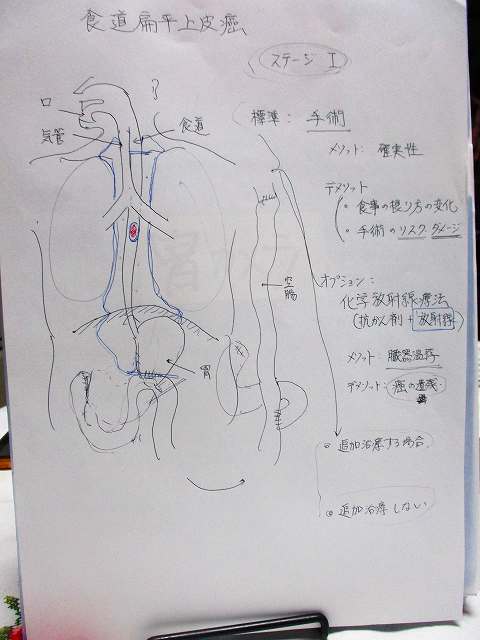 食道扁平上皮癌
ステージ I
口
気管
食道
標準： 手術
メリット： 確実性
デメリット
・食事の摂り方の変化
・手術のリスク ダメージ
空腸
オプション：
化学放射線療法
(抗がん剤 + 放射線)
胃
メリット： 臓器温存
デメリット： 癌の遺残
追加治療する場合
追加治療しない